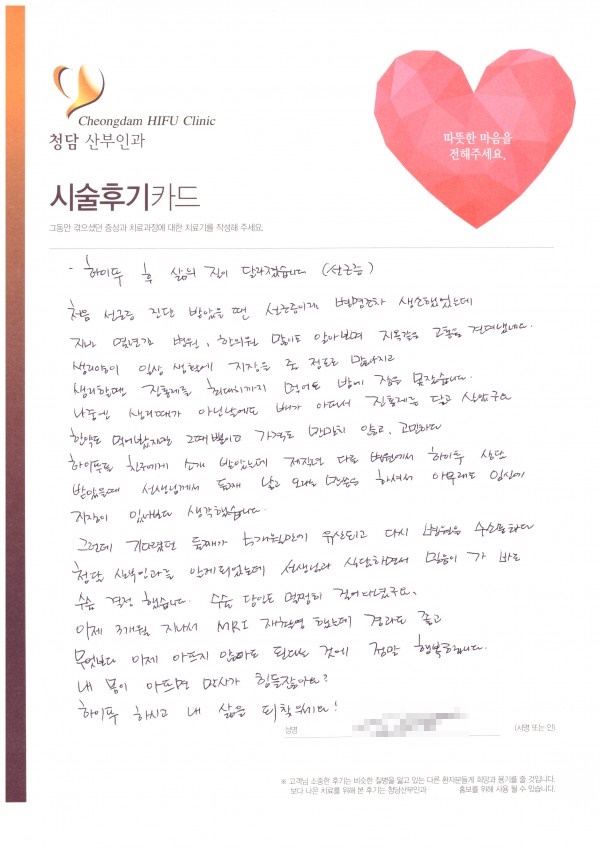 Cheongdam HIFU Clinic
청담 산부인과
따뜻한 마음을
전해주세요.
시술후기카드
그동안 겪으셨던 증상과 치료과정에 대한 치료기를 작성해 주세요.
- 하이푸 후 삶의 질이 달라졌습니다 (선근증)
처음 선근증 진단 받았을 땐 선근증이라는 병명조차 생소했었는데
지난 몇년간 병원, 한의원 많이도 알아보며 지옥같은 고통을 견뎌냈네요.
생리양이 일상 생활에 지장을 줄 정도로 많아지고
생리할땐 진통제를 최대치까지 먹어도 밤에 잠을 못잤습니다.
나중엔 생리때가 아닌날에도 배가 아파서 진통제를 달고 살았구요
한약도 먹어봤지만 그때뿐이고 가격도 만만치 않고, 고민하다
하이푸를 친구에게 소개 받았는데 재작년 다른 병원에서 하이푸 상담
받았을때 선생님께서 둘째 낳고 오라는 말씀을 하셔서 아무래도 임신에
지장이 있나보다 생각했습니다.
그런데 기다렸던 둘째가 5개월만에 유산되고 다시 병원을 수소문하다
청담 산부인과를 알게되었는데 선생님과 상담하면서 믿음이 가 바로
수술 결정 했습니다. 수술 당일도 멀쩡히 걸어다녔구요.
이제 3개월 지나서 MRI 재촬영 했는데 경과도 좋고
무엇보다 이제 아프지 않아도 된다는 것에 정말 행복합니다.
내 몸이 아프면 만사가 힘들잖아요?
하이푸 하시고 내 삶을 되찾으세요!
성명
(서명 또는 인)
※ 고객님 소중한 후기는 비슷한 질병을 앓고 있는 다른 환자분들게 희망과 용기를 줄 것입니다.
보다 나은 치료를 위해 본 후기는 청담산부인과 홍보를 위해 사용 될 수 있습니다.